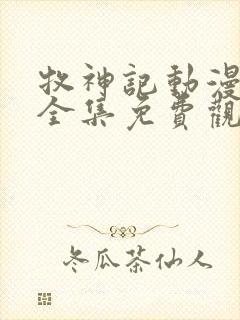 牧神記動漫
全集免費觀
冬瓜茶仙人